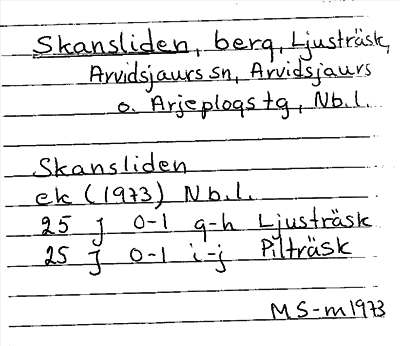 Skansliden, berg, Ljusträsk,
Arvidsjaurs sn, Arvidsjaurs
o. Arjeplogs tg, Nb.l.
Skansliden
ek (1973) Nb.l.
25 J 0-1 g-h Ljusträsk
25 J 0-1 i-j Pilträsk
MS-m 1973